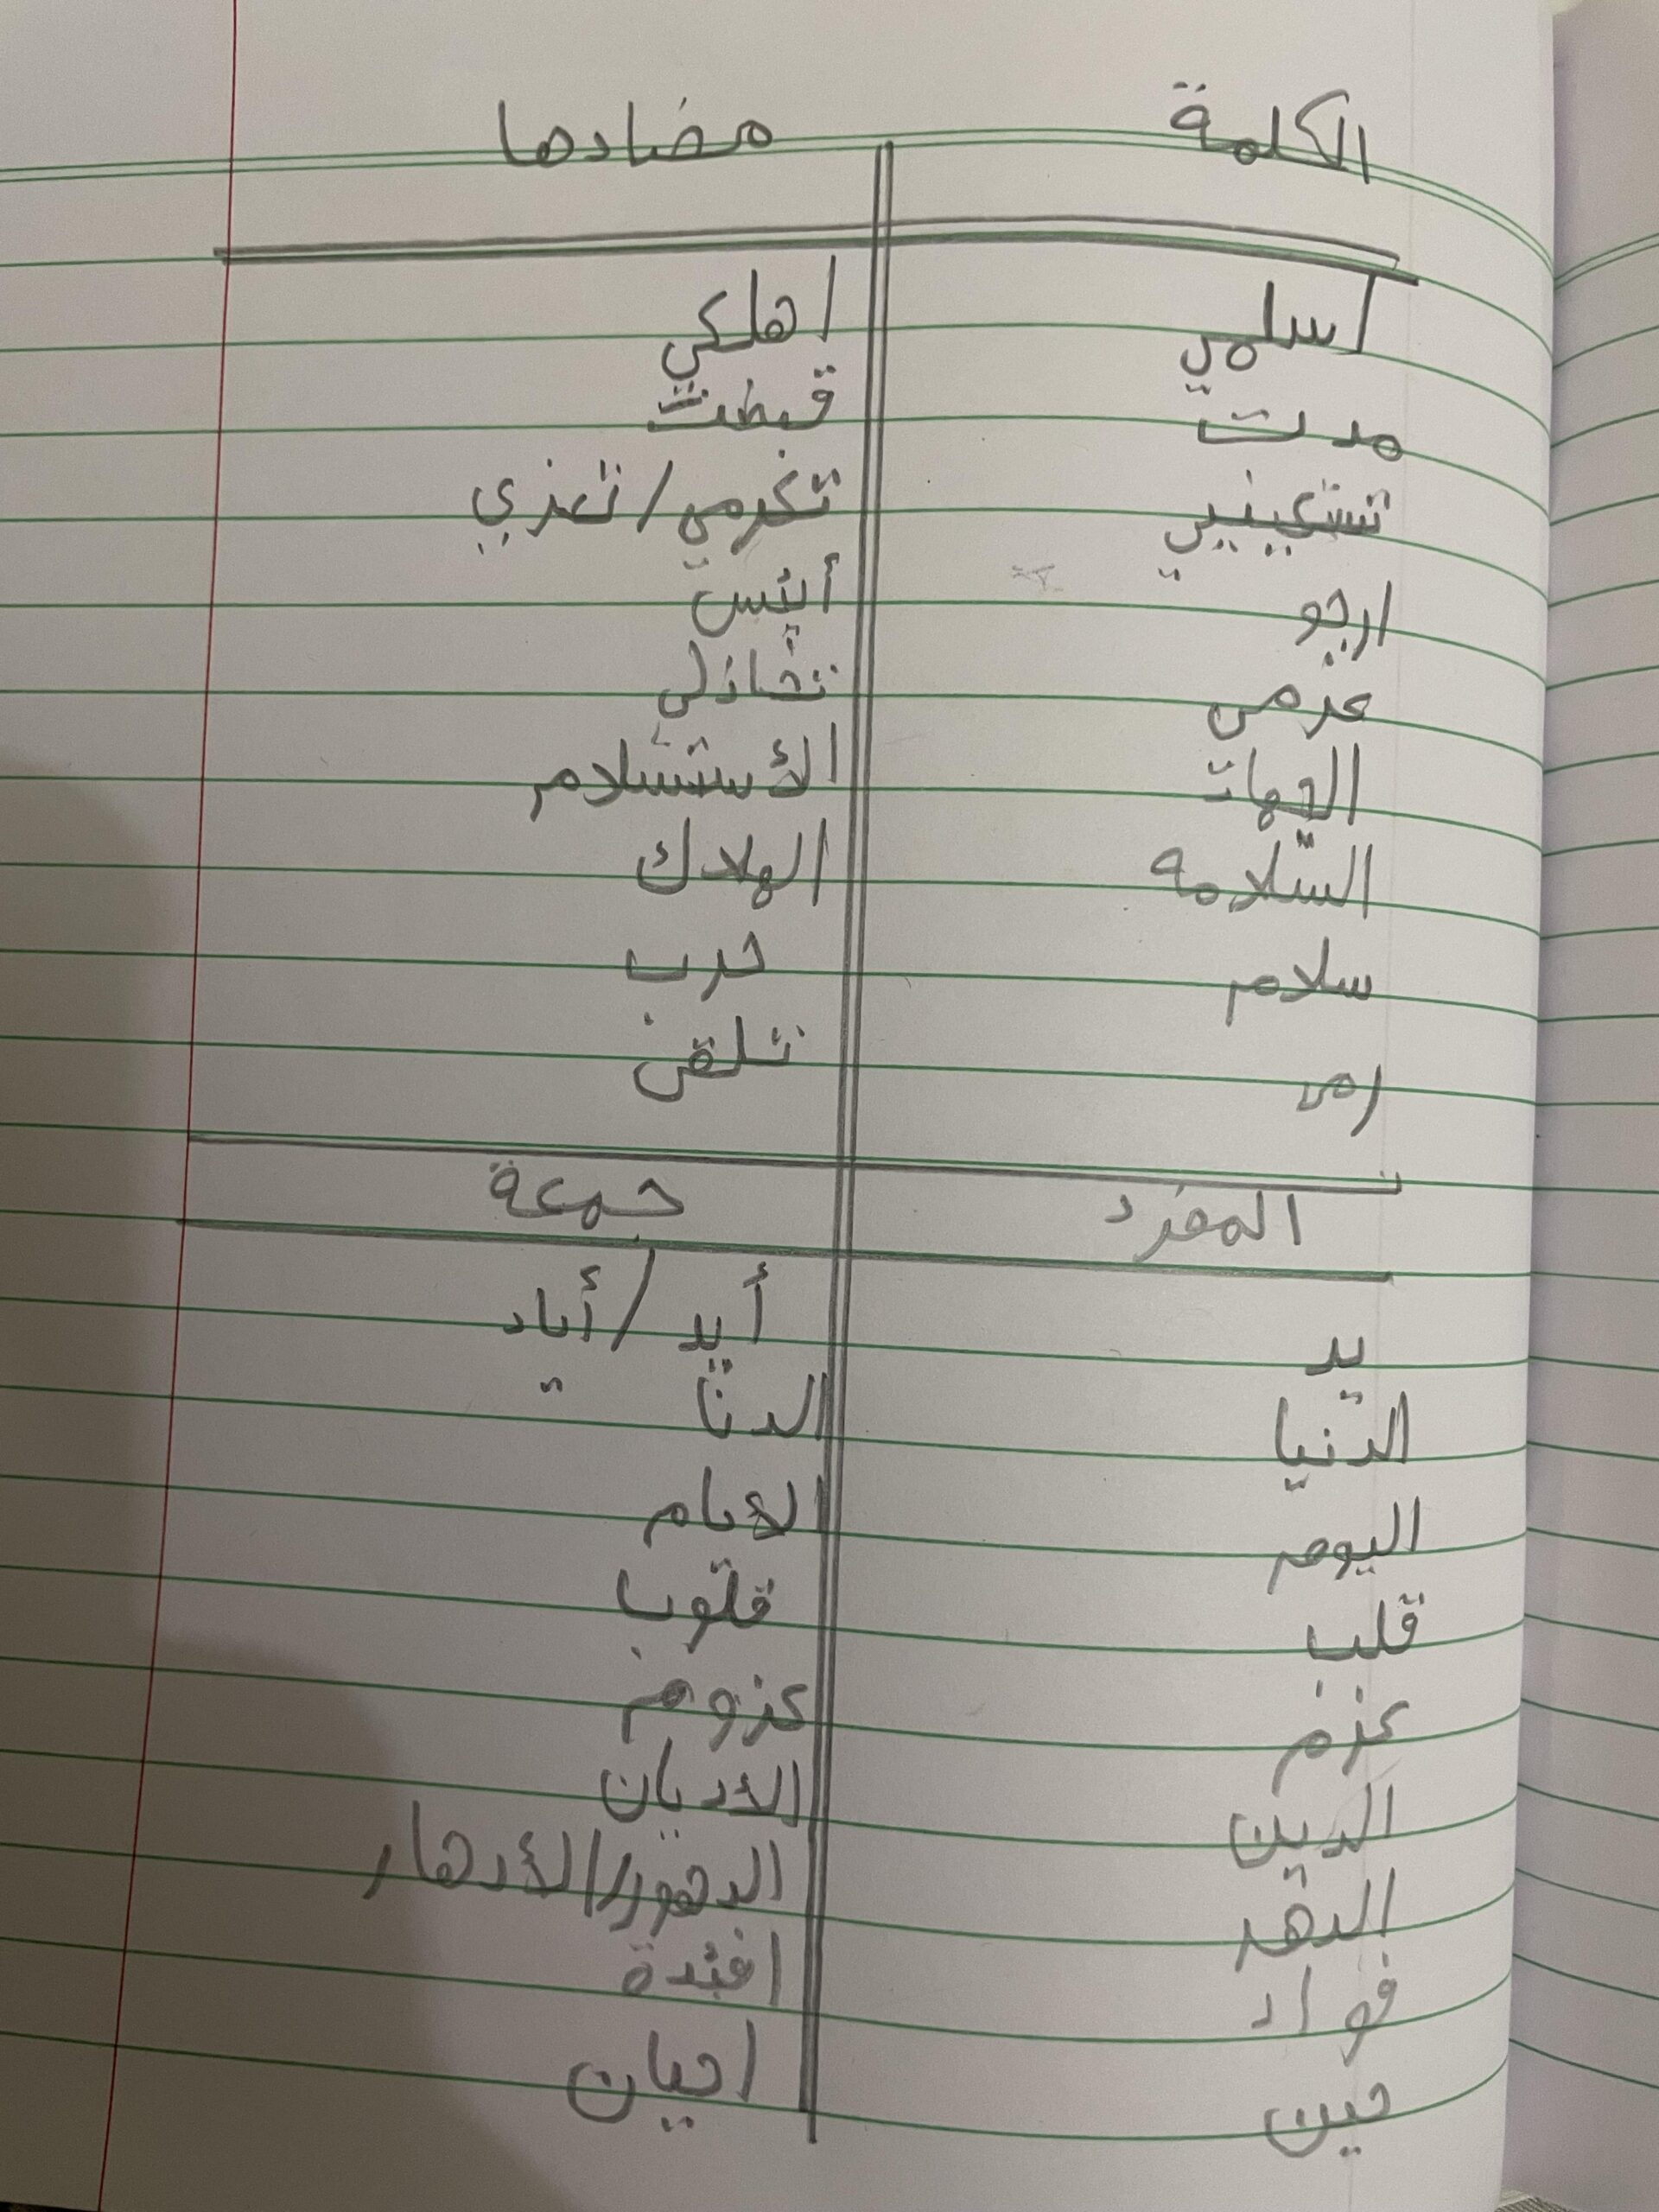 الكلمة مضادها
اسلمي اهلكي
مدت قبضت
تستعيني تكرمي / تعزي
ارجو أيئس
عزمي تخاذلي
الجهات الأستسلام
السّلامه الهلاك
سلام حرب
رمى تلقى
المفرد جمعة
يد أيد / أياد
الدنيا الدنا
اليوم الأيام
قلب قلوب
عزم عزوم
الدين الأديان
الدهر الدهور / الأدهار
فواد افئدة
حين احيان